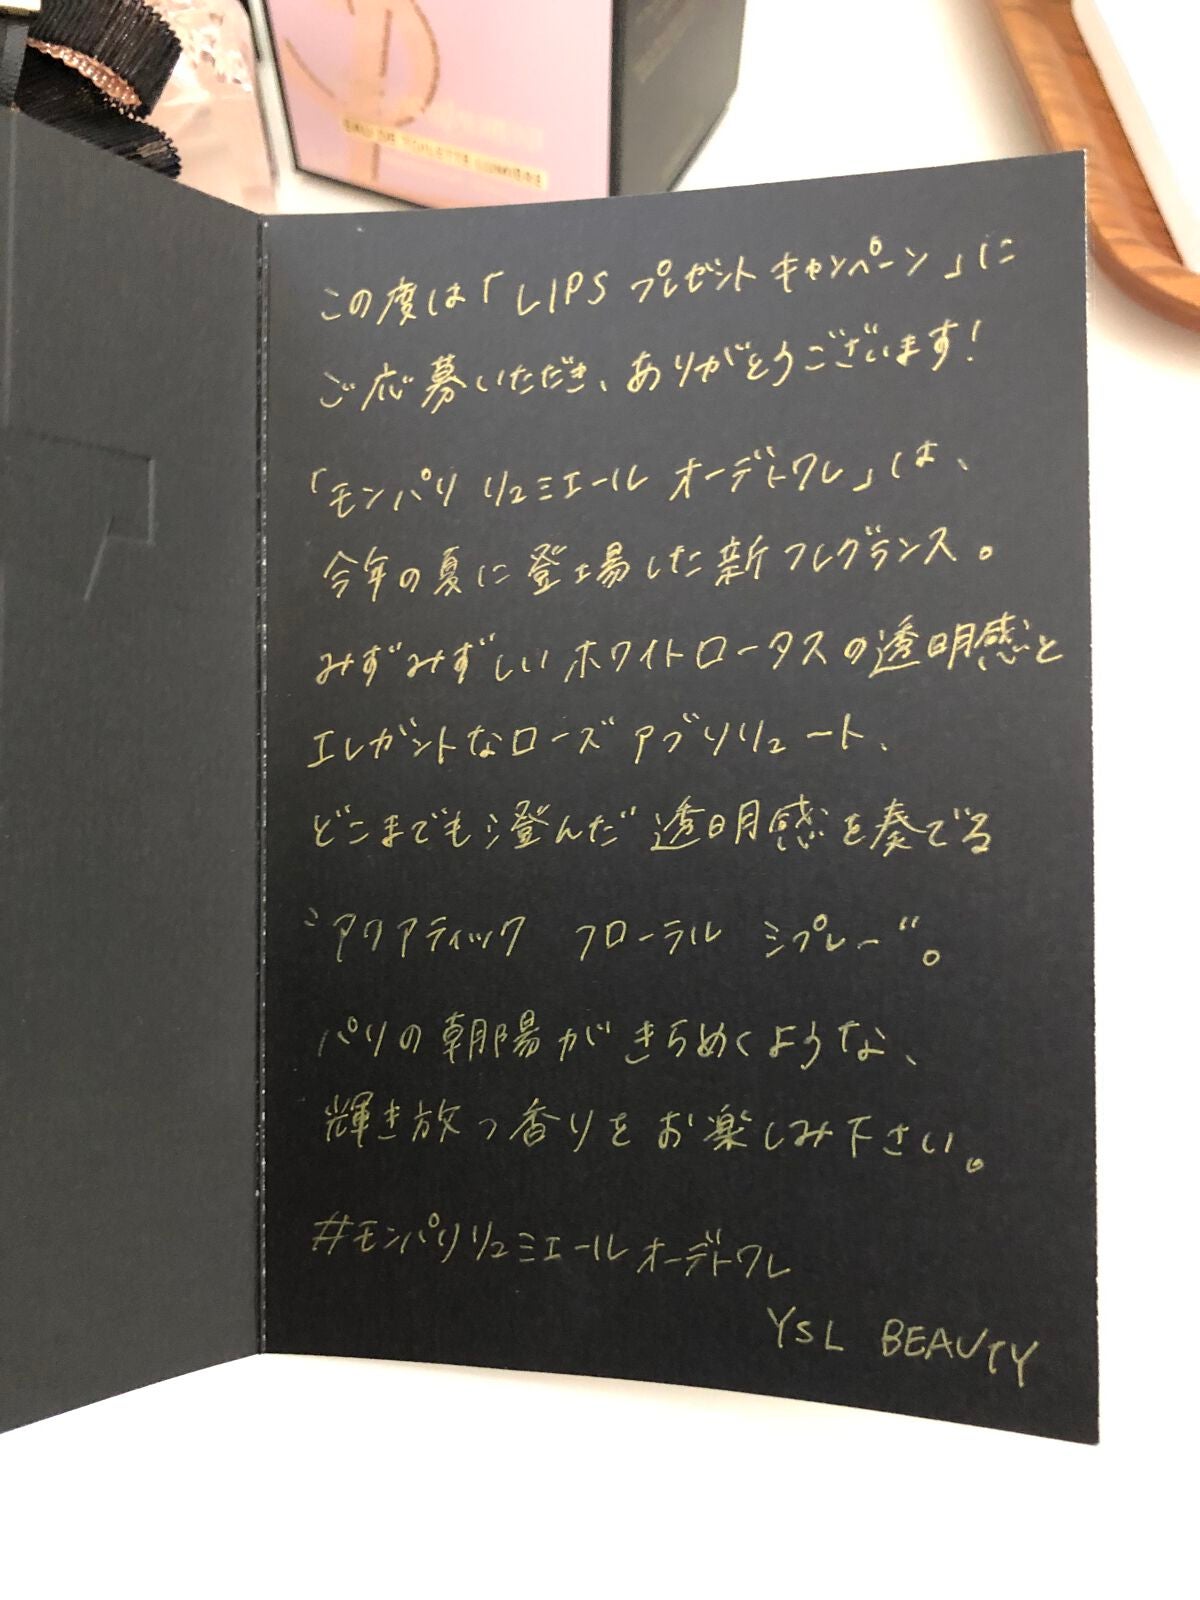 EAU DE TOILETTE LUMIÈRE
この度は「LIPS プレゼント キャンペーン」に
ご応募いただき、ありがとうございます!
「モンパリ リュミエール オーデトワレ」は、
今年の夏に登場した新フレグランス。
みずみずしいホワイトロータスの透明感と
エレガントなローズ アブソリュート、
どこまでも澄んだ透明感を奏でる
〝アクアティック フローラル シプレー〟。
パリの朝陽がきらめくような、
輝き放つ香りをお楽しみ下さい。
#モンパリリュミエールオーデトワレ
YSL BEAUTY